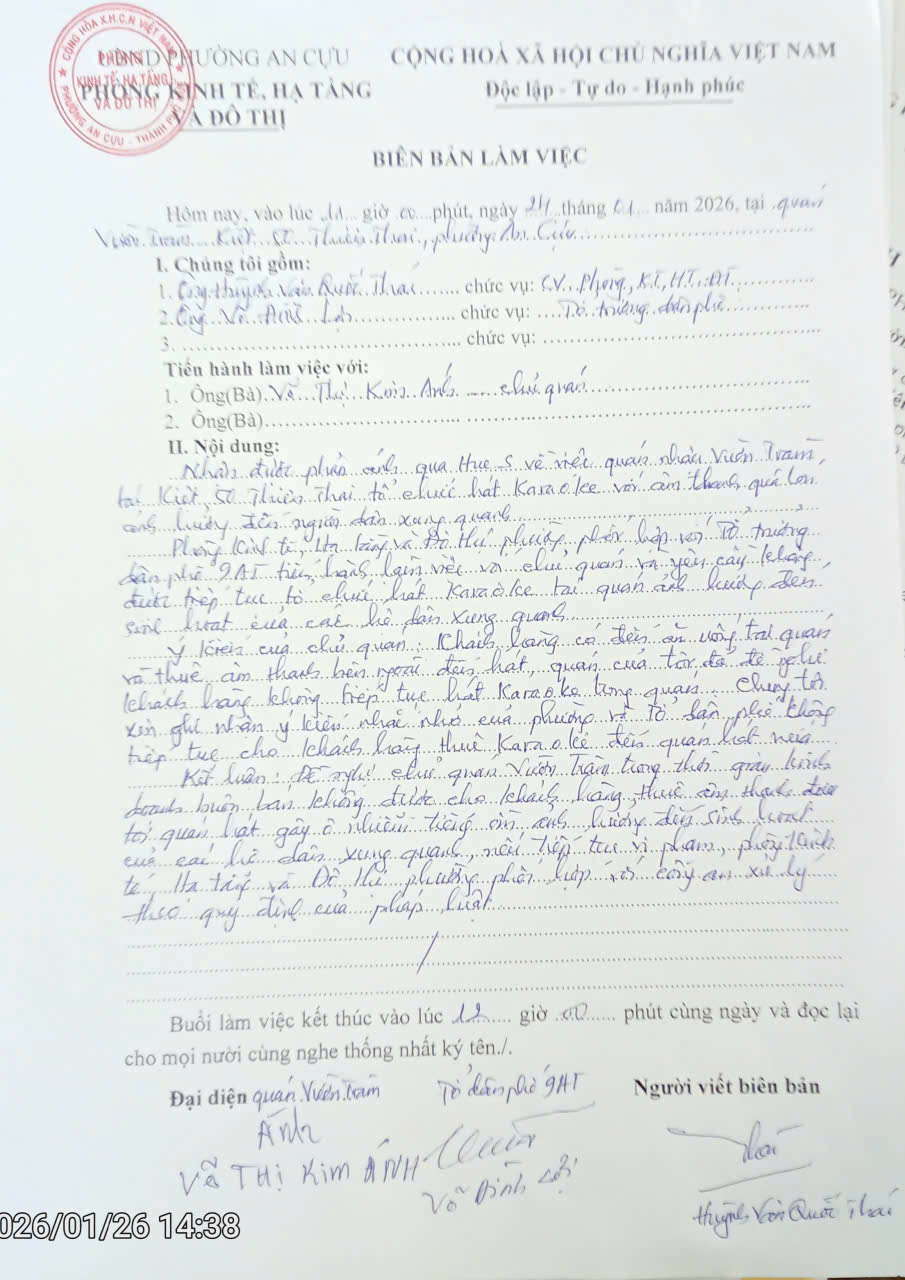 CỘNG HÒA X.H.C.N VIỆT NAM
PHÒNG
KINH TẾ, HẠ TẦNG
VÀ ĐÔ THỊ
PHƯỜNG AN CỰU - THÀNH PHỐ
UBND PHƯỜNG AN CỰU
PHÒNG KINH TẾ, HẠ TẦNG
VÀ ĐÔ THỊ
CỘNG HOÀ XÃ HỘI CHỦ NGHĨA VIỆT NAM
Độc lập - Tự do - Hạnh phúc
BIÊN BẢN LÀM VIỆC
Hôm nay, vào lúc 11 giờ 00 phút, ngày 24 tháng 01 năm 2026, tại quán
Vườn Tràm Kiệt 50 Thiên Thai, phường An Cựu
I. Chúng tôi gồm:
1. Ông Huỳnh Văn Quốc Thái chức vụ: CV. Phòng KT, HT, ĐT
2. Ông Võ Đình chức vụ: Tổ trưởng dân phố
3. chức vụ:
Tiến hành làm việc với:
1. Ông(Bà) Võ Thị Kim Ánh chủ quán
2. Ông(Bà)
II. Nội dung:
Nhận được phản ánh qua Hue_S về việc quán nhậu Vườn Tràm,
tại Kiệt 50 Thiên Thai tổ chức hát Karaoke với âm thanh quá lớn
ảnh hưởng đến người dân xung quanh
Phòng Kinh tế, Hạ tầng và Đô thị phường phối hợp với Tổ trưởng
dân phố 9AT tiến hành làm việc với chủ quán và yêu cầu không
được tiếp tục tổ chức hát Karaoke tại quán ảnh hưởng đến
sinh hoạt của các hộ dân xung quanh
Ý kiến của chủ quán: Khách hàng có đến ăn uống tại quán
và thuê âm thanh bên ngoài đến hát, quán của tôi đã đề nghị
khách hàng không tiếp tục hát Karaoke trong quán. Chúng tôi
xin ghi nhận ý kiến nhắc nhở của phường và tổ dân phố không
tiếp tục cho khách hàng thuê Karaoke đến quán hát nữa
Kết luận: Đề nghị chủ quán Vườn Tràm trong thời gian kinh
doanh buôn bán không được cho khách hàng thuê âm thanh đem
tới quán hát gây ô nhiễm tiếng ồn, ảnh hưởng đến sinh hoạt
của các hộ dân xung quanh, nếu tiếp tục vi phạm, phòng Kinh
tế, Hạ tầng và Đô thị phường phối hợp với công an xử lý
theo quy định của pháp luật
Buổi làm việc kết thúc vào lúc 12 giờ 00 phút cùng ngày và đọc lại
cho mọi nười cùng nghe thống nhất ký tên./.
Đại diện quán Vườn Tràm
Tổ dân phố 9AT
Người viết biên bản
Ánh
VÕ THỊ KIM ÁNH
Võ Đình
Thái
Huỳnh Văn Quốc Thái
026/01/26 14:38